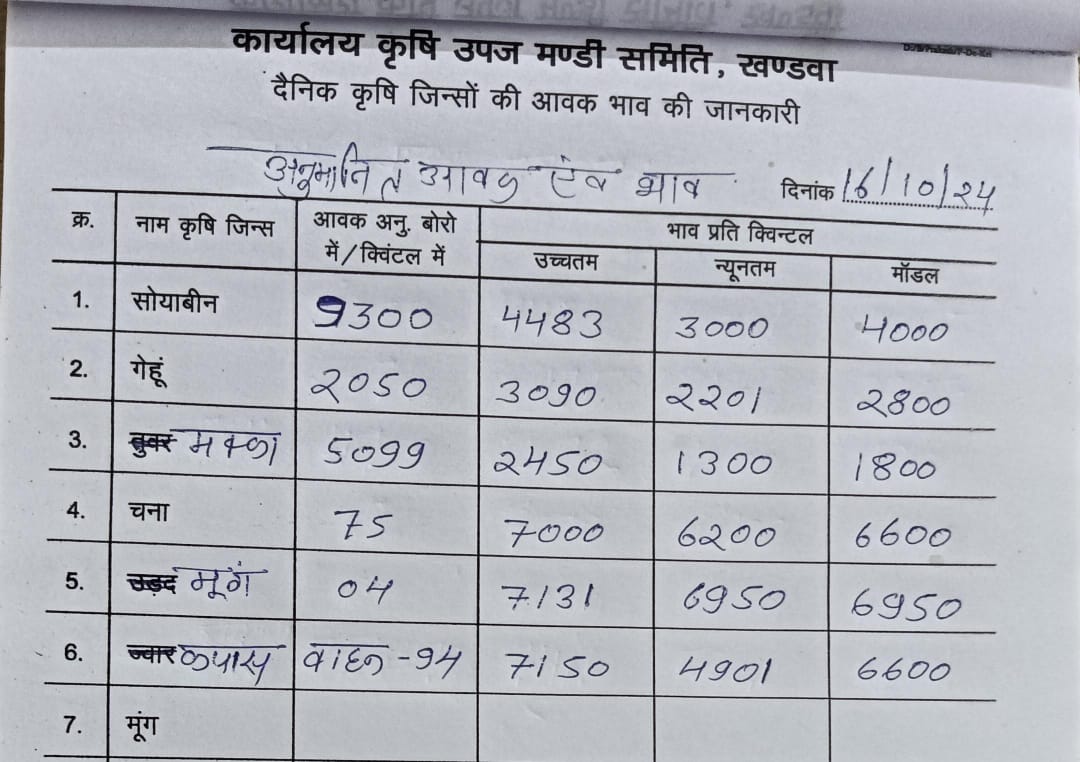 कार्यालय कृषि उपज मण्डी समिति, खण्डवा
दैनिक कृषि जिन्सों की आवक भाव की जानकारी
अनुमानित आवक एंव भाव दिनांक 16/10/24
क्र. नाम कृषि जिन्स आवक अनु. बोरो में/क्विंटल में भाव प्रति क्विन्टल
उच्चतम न्यूनतम मॉडल
1. सोयाबीन 9300 4483 3000 4000
2. गेहूं 2050 3090 2201 2800
3. तुवर मक्का 5099 2450 1300 1800
4. चना 75 7000 6200 6600
5. उड़द मूगं 04 7131 6950 6950
6. ज्वार कपास वाहन-94 7150 4901 6600
7. मूंग